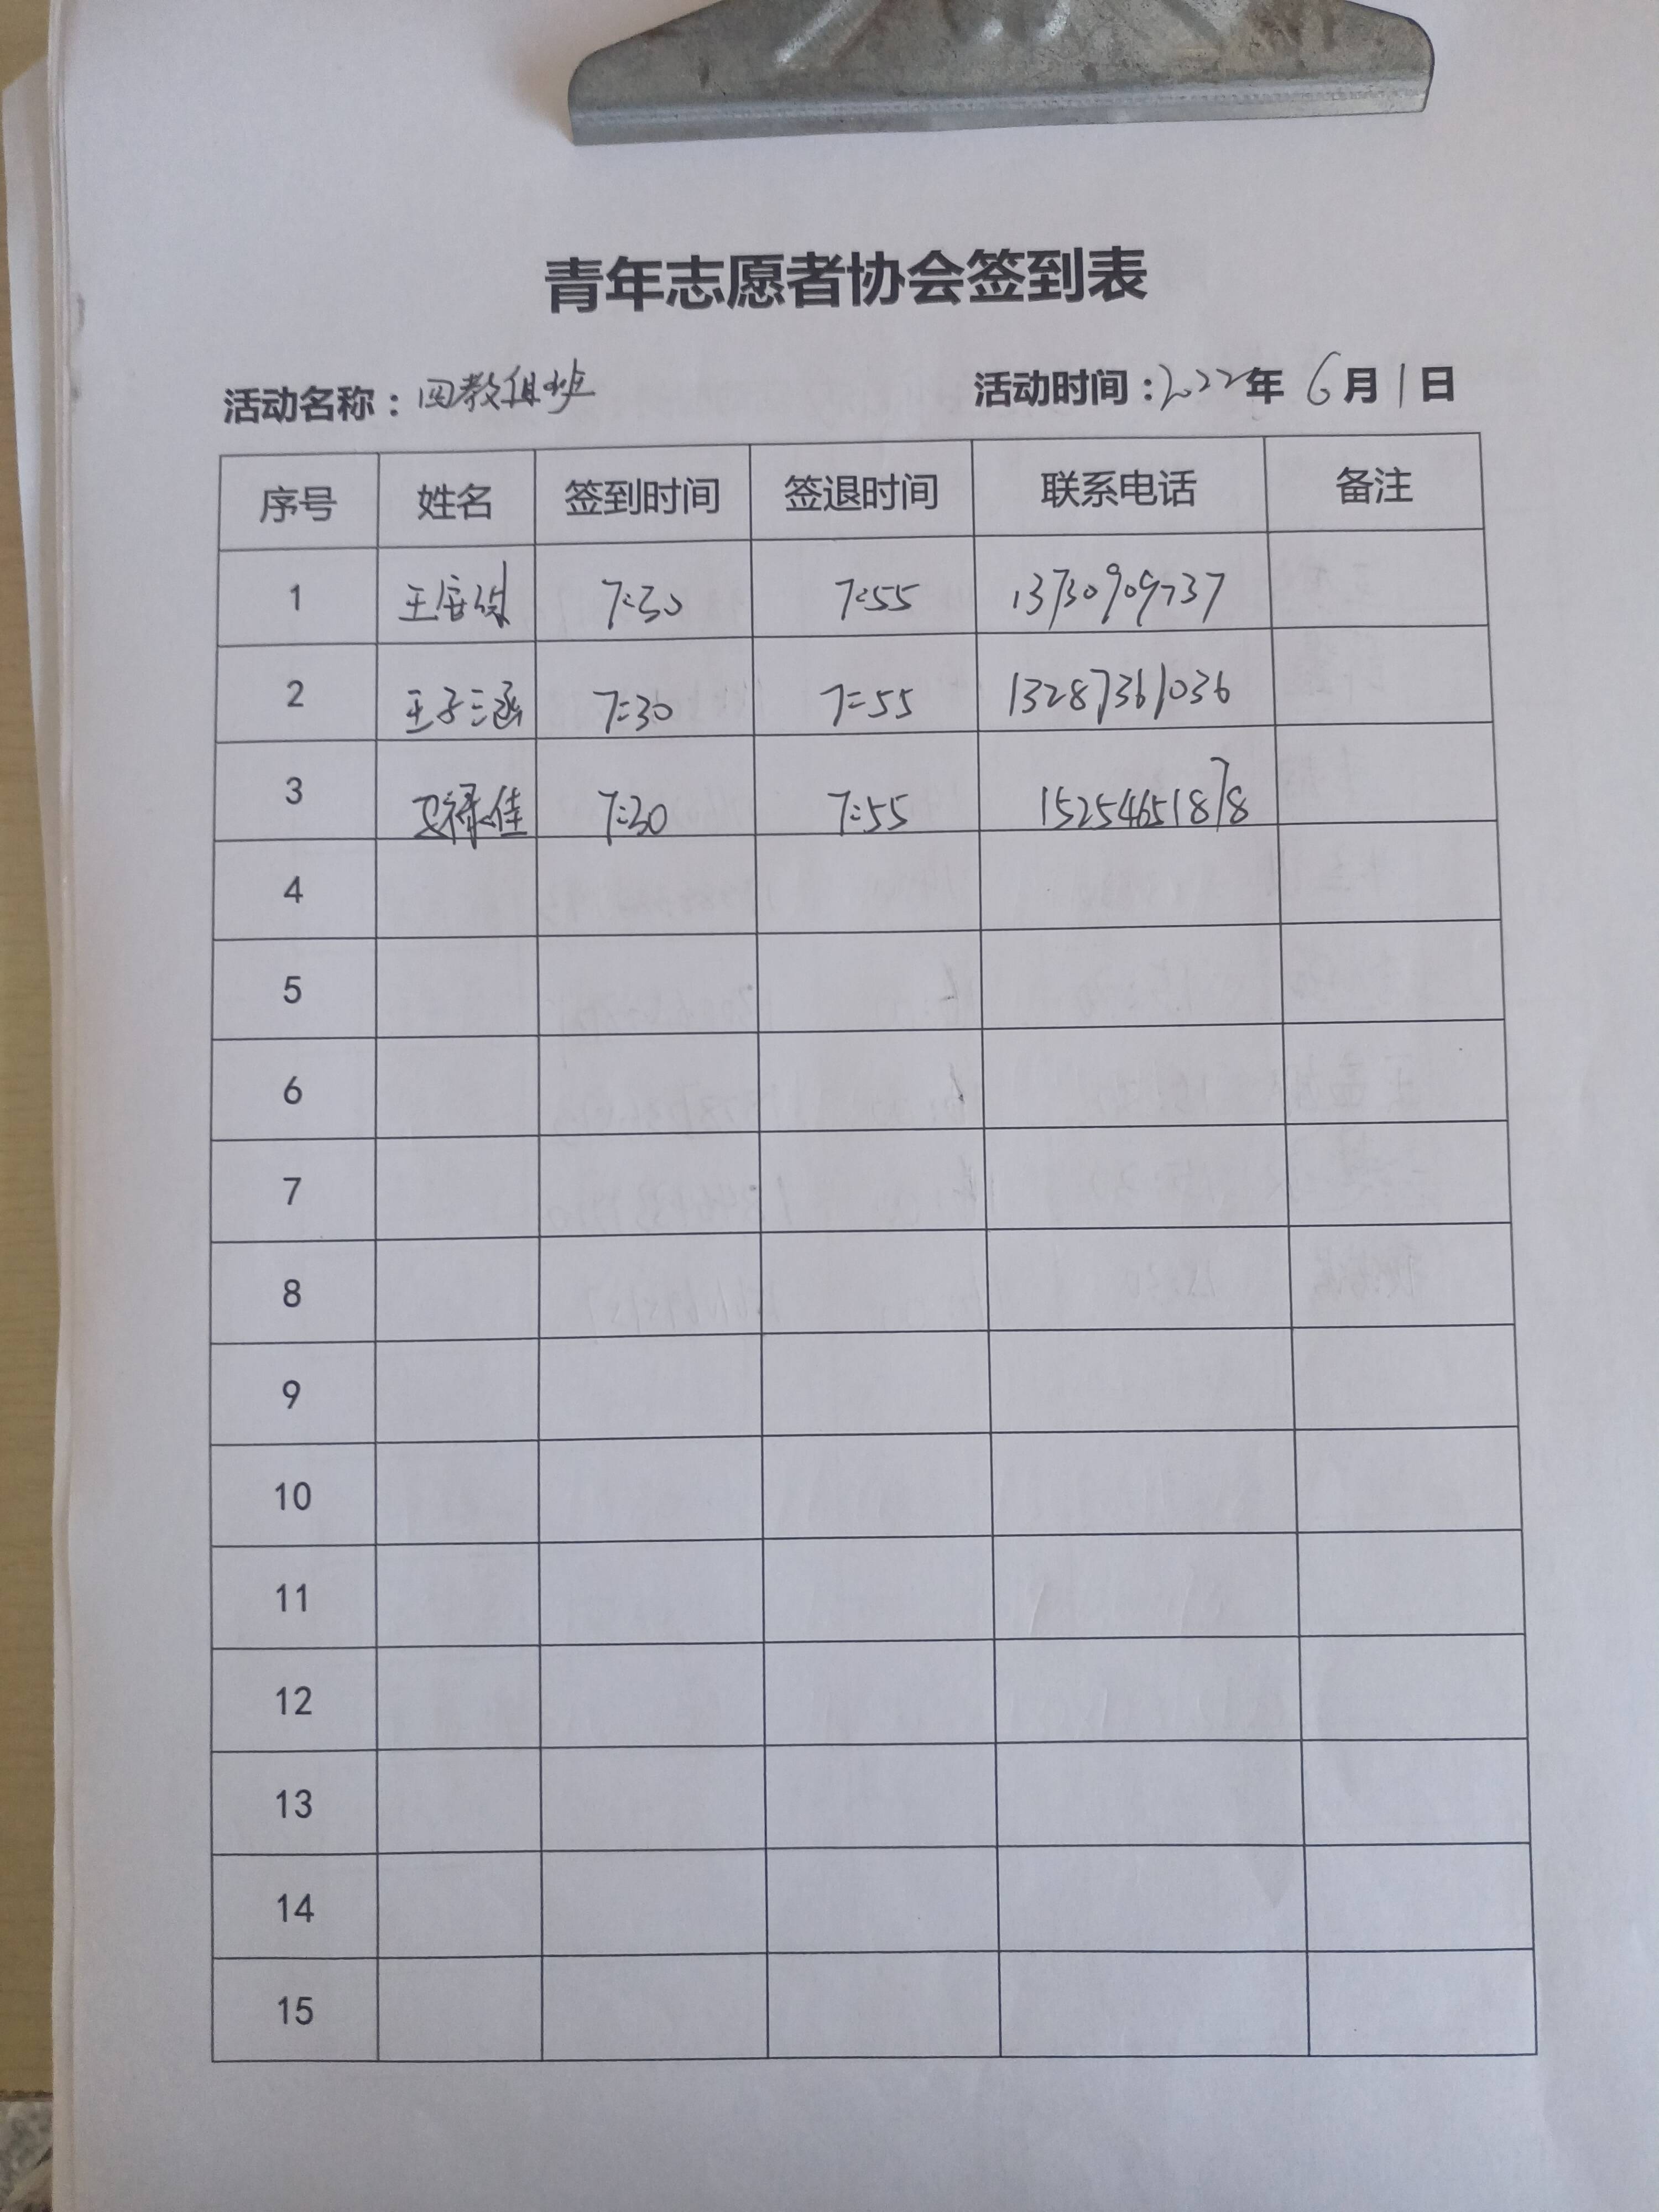 青年志愿者协会签到表
活动名称：四教值班 活动时间：2022年 6月1日
序号 姓名 签到时间 签退时间 联系电话 备注
1 7:30 7:55 13730909737
2 王子涵 7:30 7:55 13287361036
3 佳 7:30 7:55 15254651878
4
5
6
7
8
9
10
11
12
13
14
15